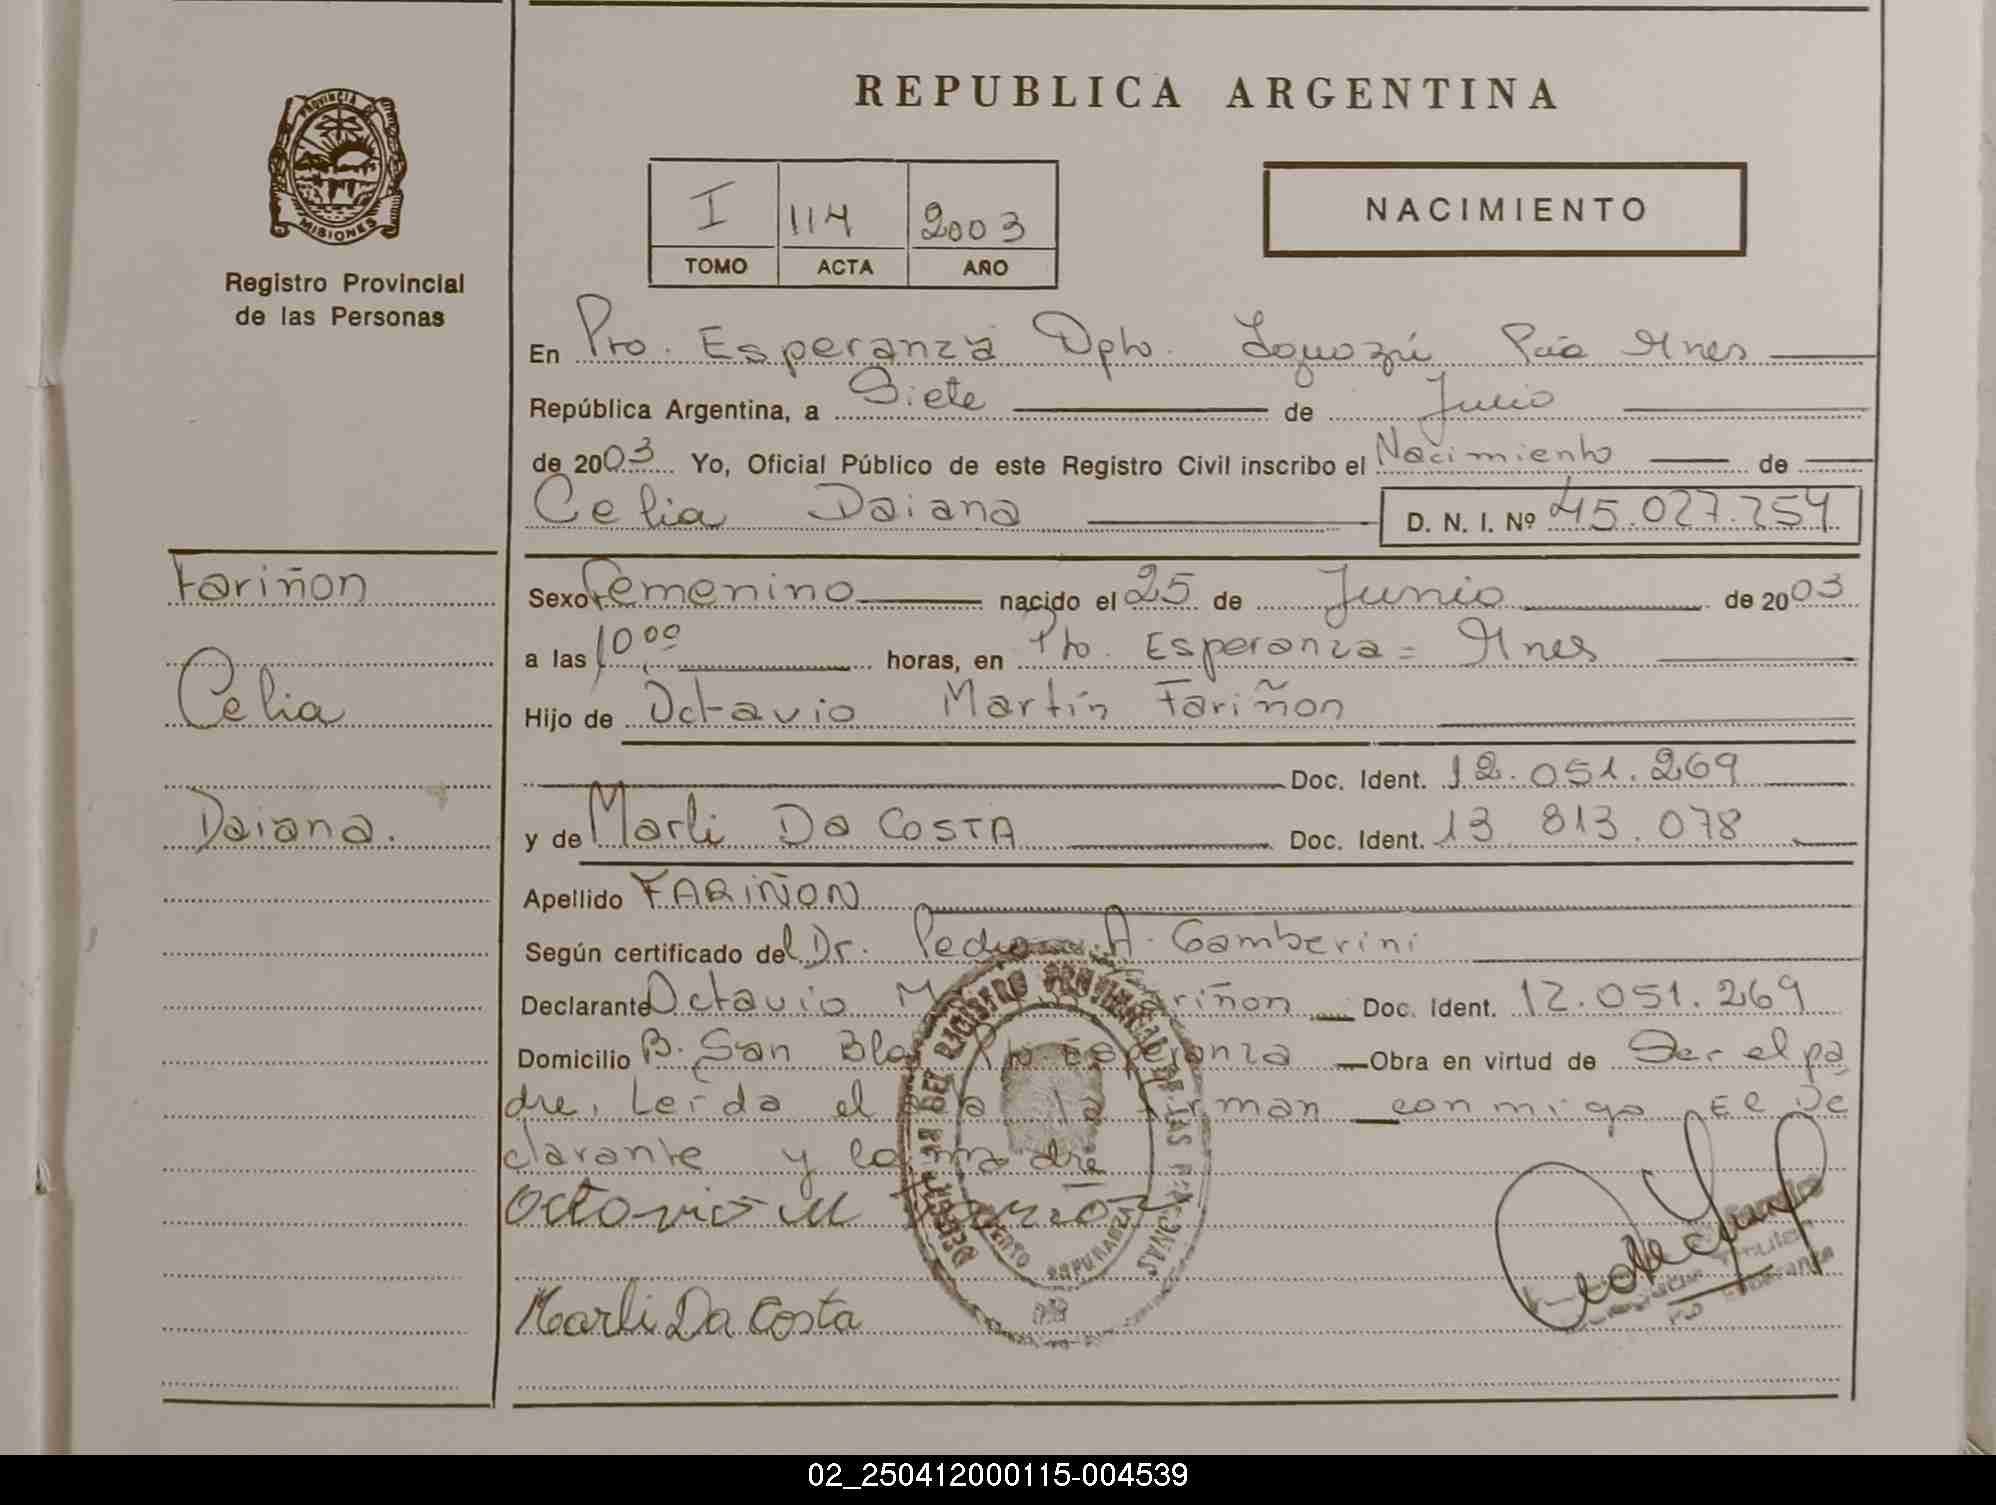 REPUBLICA ARGENTINA
PROVINCIA DE
MISIONES
Registro Provincial
de las Personas
I 114 2003
TOMO ACTA AÑO
NACIMIENTO
En Pto. Esperanza Dpto. Iguazú Pcia Mnes
República Argentina, a Siete de Julio
de 2003 Yo, Oficial Público de este Registro Civil inscribo el Nacimiento de
Celia Daiana D. N. I. Nº 45.027.254
Fariñon
Celia
Daiana.
Sexo Femenino nacido el 25 de Junio de 2003
a las 10 00 horas, en Pto. Esperanza = Mnes
Hijo de Octavio Martín Fariñon
Doc. Ident. 12.051.269
y de Marli Da COSTA Doc. Ident. 13 813.078
Apellido FARIÑON
Según certificado del Dr. Pedro A. Gamberini
Declarante Octavio Fariñon Doc. Ident. 12.051.269
Domicilio B. San Blas Pto Esperanza Obra en virtud de Ser el pa
dre, Leída el Acta la firman conmigo El De
clarante y la madre
Octavio M Fariñon
Marli Da Costa
REGISTRO PROVINCIAL DE LAS PERSONAS
PUERTO ESPERANZA
02_250412000115-004539